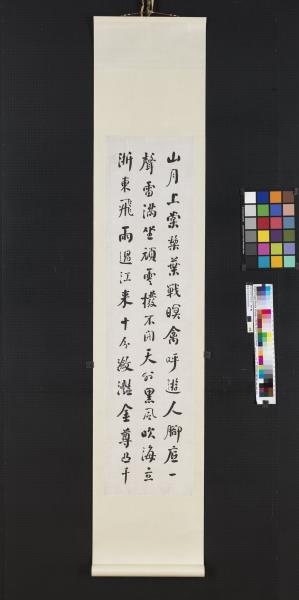 山月上棠棃葉戰暝禽呼遊人腳底一
聲雷滿坐頑雲撥不開天外黑風吹海立
浙東飛雨過江來十分瀲灩金尊凸千